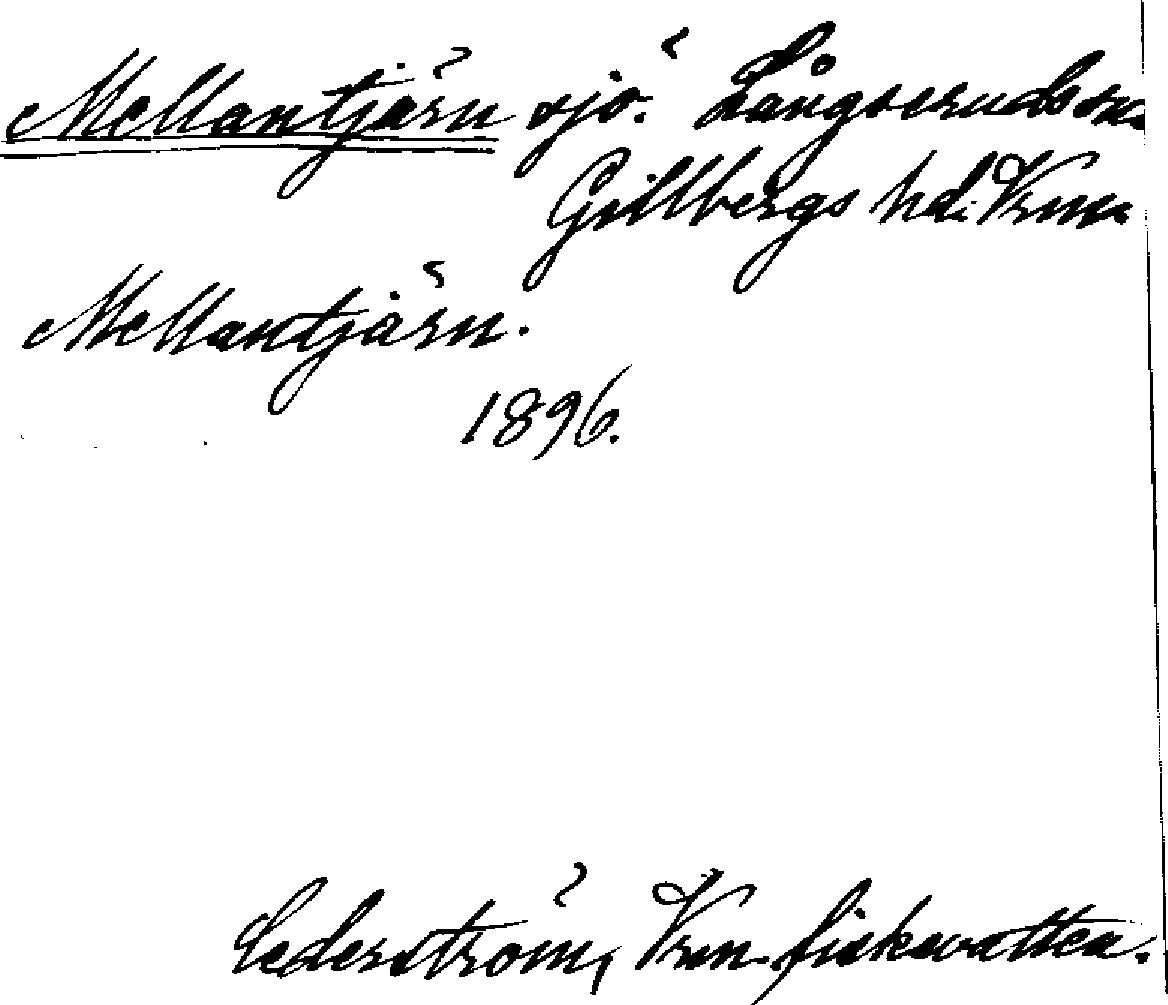 Mellantjärn sjö. Långseruds sn.
Gillbergs hd. Vrm.
Mellantjärn.
1896.
Cederström, Vrm. fiskevatten.